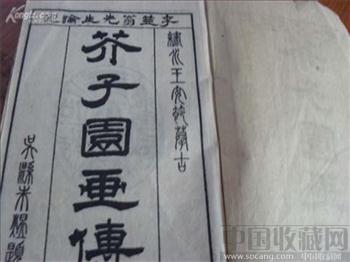 李笠翁先生論定
繡水王安節摹古
芥子園畫傳
吳縣朱煜題
中国收藏网
www.socang.com
中国收藏网